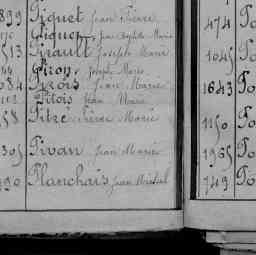 899 Piquet Jean Pierre 474 Po
Piquon Jean Baptiste Marie
513 Pirault Joseph Marie 1045 Po
Piron Joseph Marie
584 Pirois Jean Marie 1643 Po
Pitois Jean Marie
58 Pitre Pierre Marie 1150 Po
305 Pivan Jean Marie 1965 Po
990 Planchais Jean Michel 749 Po